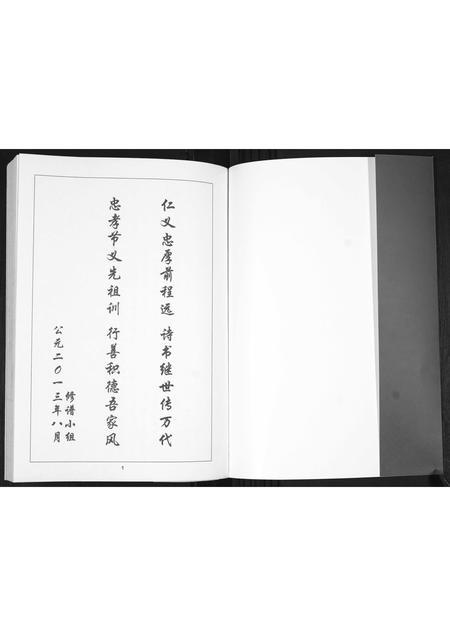 仁义忠厚前程远 诗书继世传万代
忠孝节义先祖训 行善积德吾家风
修谱小组
公元二0一三年八月
1